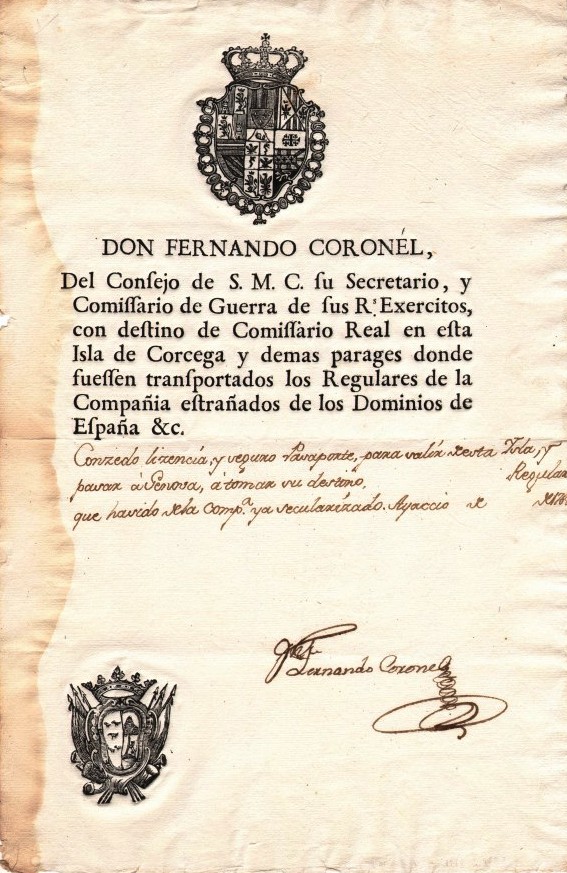 DON FERNANDO CORONÉL,
Del Conſejo de S. M. C. ſu Secretario, y
Comiſſario de Guerra de ſus R.ˢ Exercitos,
con deſtino de Comiſſario Real en eſta
Isla de Corcega y demas parages donde
fueſſen tranſportados los Regulares de la
Compañia eſtrañados de los Dominios de
Eſpaña &c.
Conzedo lizencia, y seguro Pasaporte, para salir de esta Isla, y
pasar à Genova, à tomar su destino, Regular
que ha sido de la Comp.ª ya secularizado. Ayaccio de de
Fernando Coronel